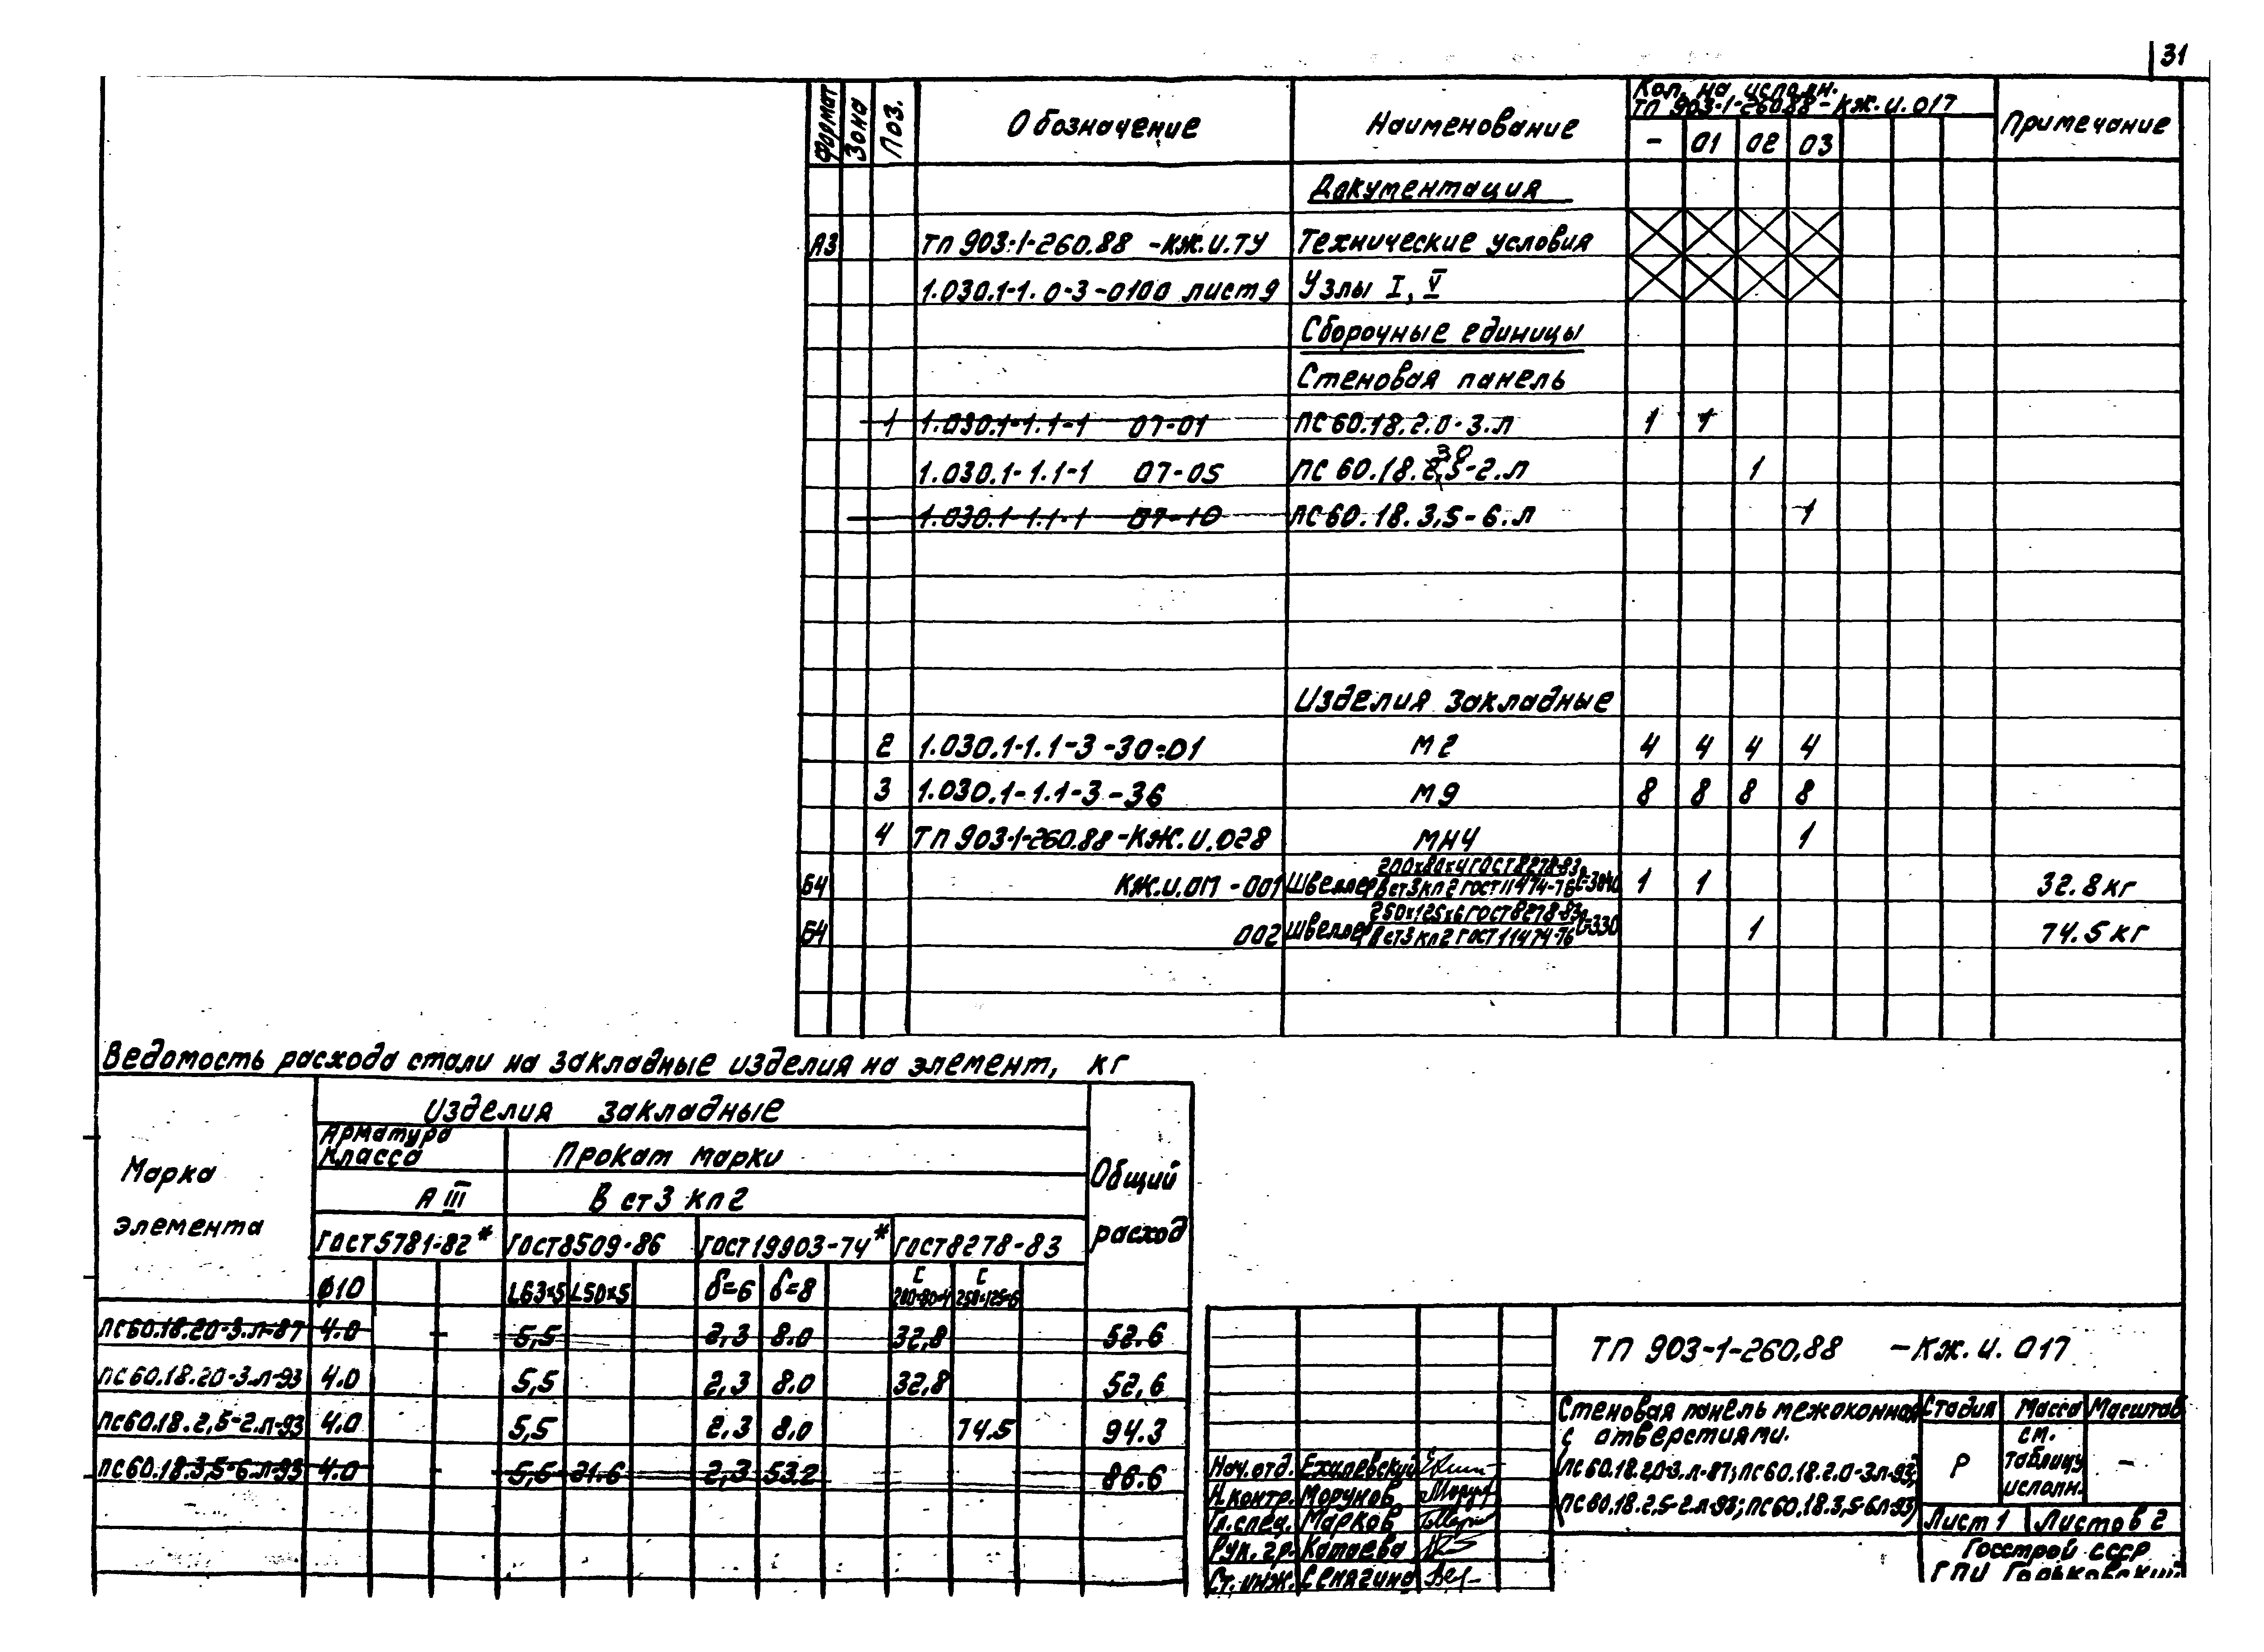 31
Формат Зона Поз. Обозначение Наименование Кол. на исполн. ТП 903-1-260.88-КЖ.И.017 Примечание
- 01 02 03
Документация
А3 ТП 903-1-260.88 -КЖ.И.ТУ Технические условия
1.030.1-1. 0-3-0100 лист 9 Узлы I, V
Сборочные единицы
Стеновая панель
1 1.030.1-1.1-1 07-01 ПС 60.18.2.0-3.л 1 1
1.030.1-1.1-1 07-05 ПС 60.18. -2.л 1
1.030.1-1.1-1 07-10 ПС 60.18.3,5-6.л 1
Изделия закладные
2 1.030.1-1.1-3-30-01 М2 4 4 4 4
3 1.030.1-1.1-3-36 М9 8 8 8 8
4 ТП 903-1-260.88-КЖ.И.028 МН4 1
Б4 КЖ.И.017-001 Швеллер 200х80х4 ГОСТ 8278-83 В ст3кп2 ГОСТ 11474-76 1 1 32.8кг
Б4 002 Швеллер 250х125х6 ГОСТ 8278-83 В ст3кп2 ГОСТ 11474-76 1 74.5кг
Ведомость расхода стали на закладные изделия на элемент, кг
Марка элемента
Изделия закладные
Общий расход
Арматура класса
Прокат марки
А III В ст3 кп2
ГОСТ 5781-82* ГОСТ 8509-86 ГОСТ 19903-74* ГОСТ 8278-83
ф10 L63х5 L50х5 δ=6 δ=8 С 200×80×4 С 250×125×6
ПС60.18.20-3.л-87 4.0 - 5,5 2,3 8.0 32,8 52.6
ПС60.18.20-3.л-93 4.0 5,5 2,3 8.0 32,8 52,6
ПС60.18.2,5-2.л-93 4.0 5,5 2.3 8.0 74.5 94.3
ПС60.18.3,5-6.л-93 4.0 - 5,5 21.6 2,3 53.2 86.6
ТП 903-1-260.88 -КЖ.И.017
Стеновая панель межоконная
с отверстиями.
(ПС60.18.2.0-3.л-87; ПС60.18.2.0-3л-93;
ПС60.18.2,5-2.л-93; ПС60.18.3,5-6л-93)
Стадия Масса Масштаб
Р см. таблицу исполн. -
Лист 1 Листов 2
Госстрой СССР
ГПИ Горьковский
Нач.отд. Ехилевский
Н.контр. Морунов
Гл.спец. Марков
Рук.гр. Катаева
Ст.инж. Сенягина